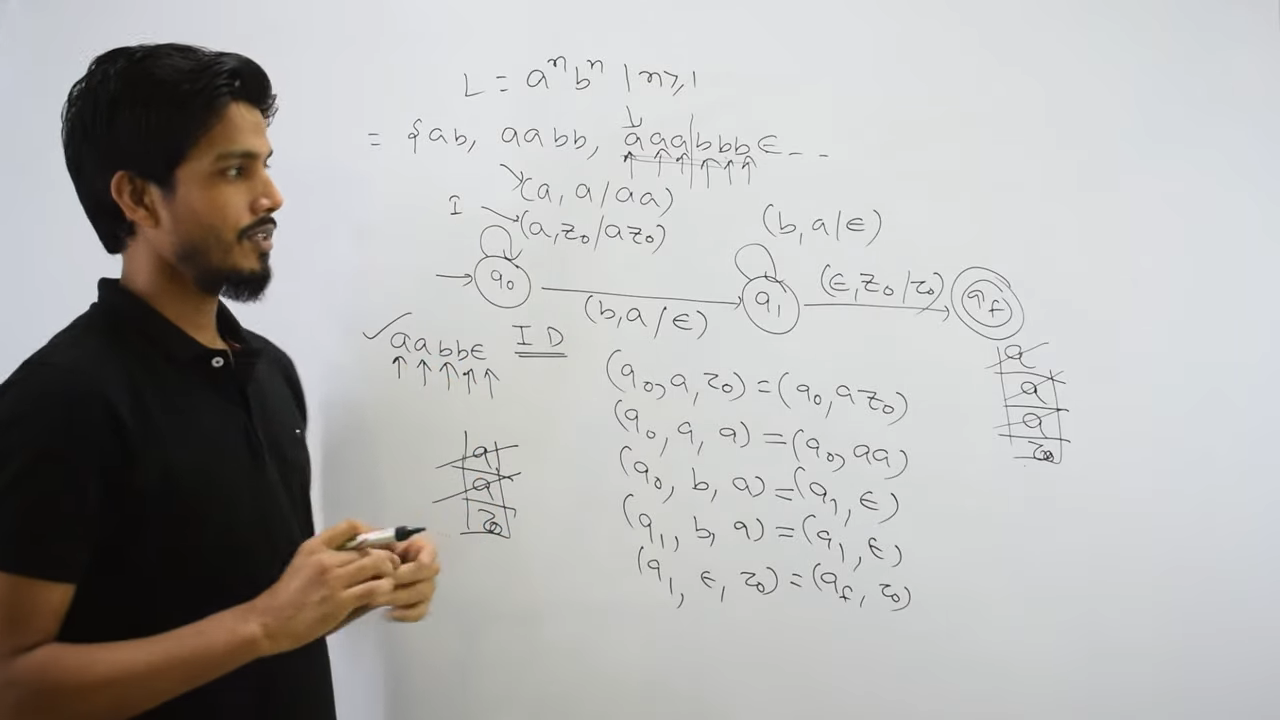 L = aⁿbⁿ | n≥1
= {ab, aabb, aaa|bbbϵ - -
(a, a/aa)
I (a, z₀/az₀)
(b, a/ϵ)
q₀ q₁ (ϵ, z₀/z₀) qf
(b, a/ϵ)
✓aabbϵ ID
(q₀, a, z₀) = (q₀, az₀)
(q₀, a, a) = (q₀, aa)
(q₀, b, a) = (q₁, ϵ)
(q₁, b, a) = (q₁, ϵ)
(q₁, ϵ, z₀) = (qf, z₀)
a
a
z₀
a
a
a
z₀